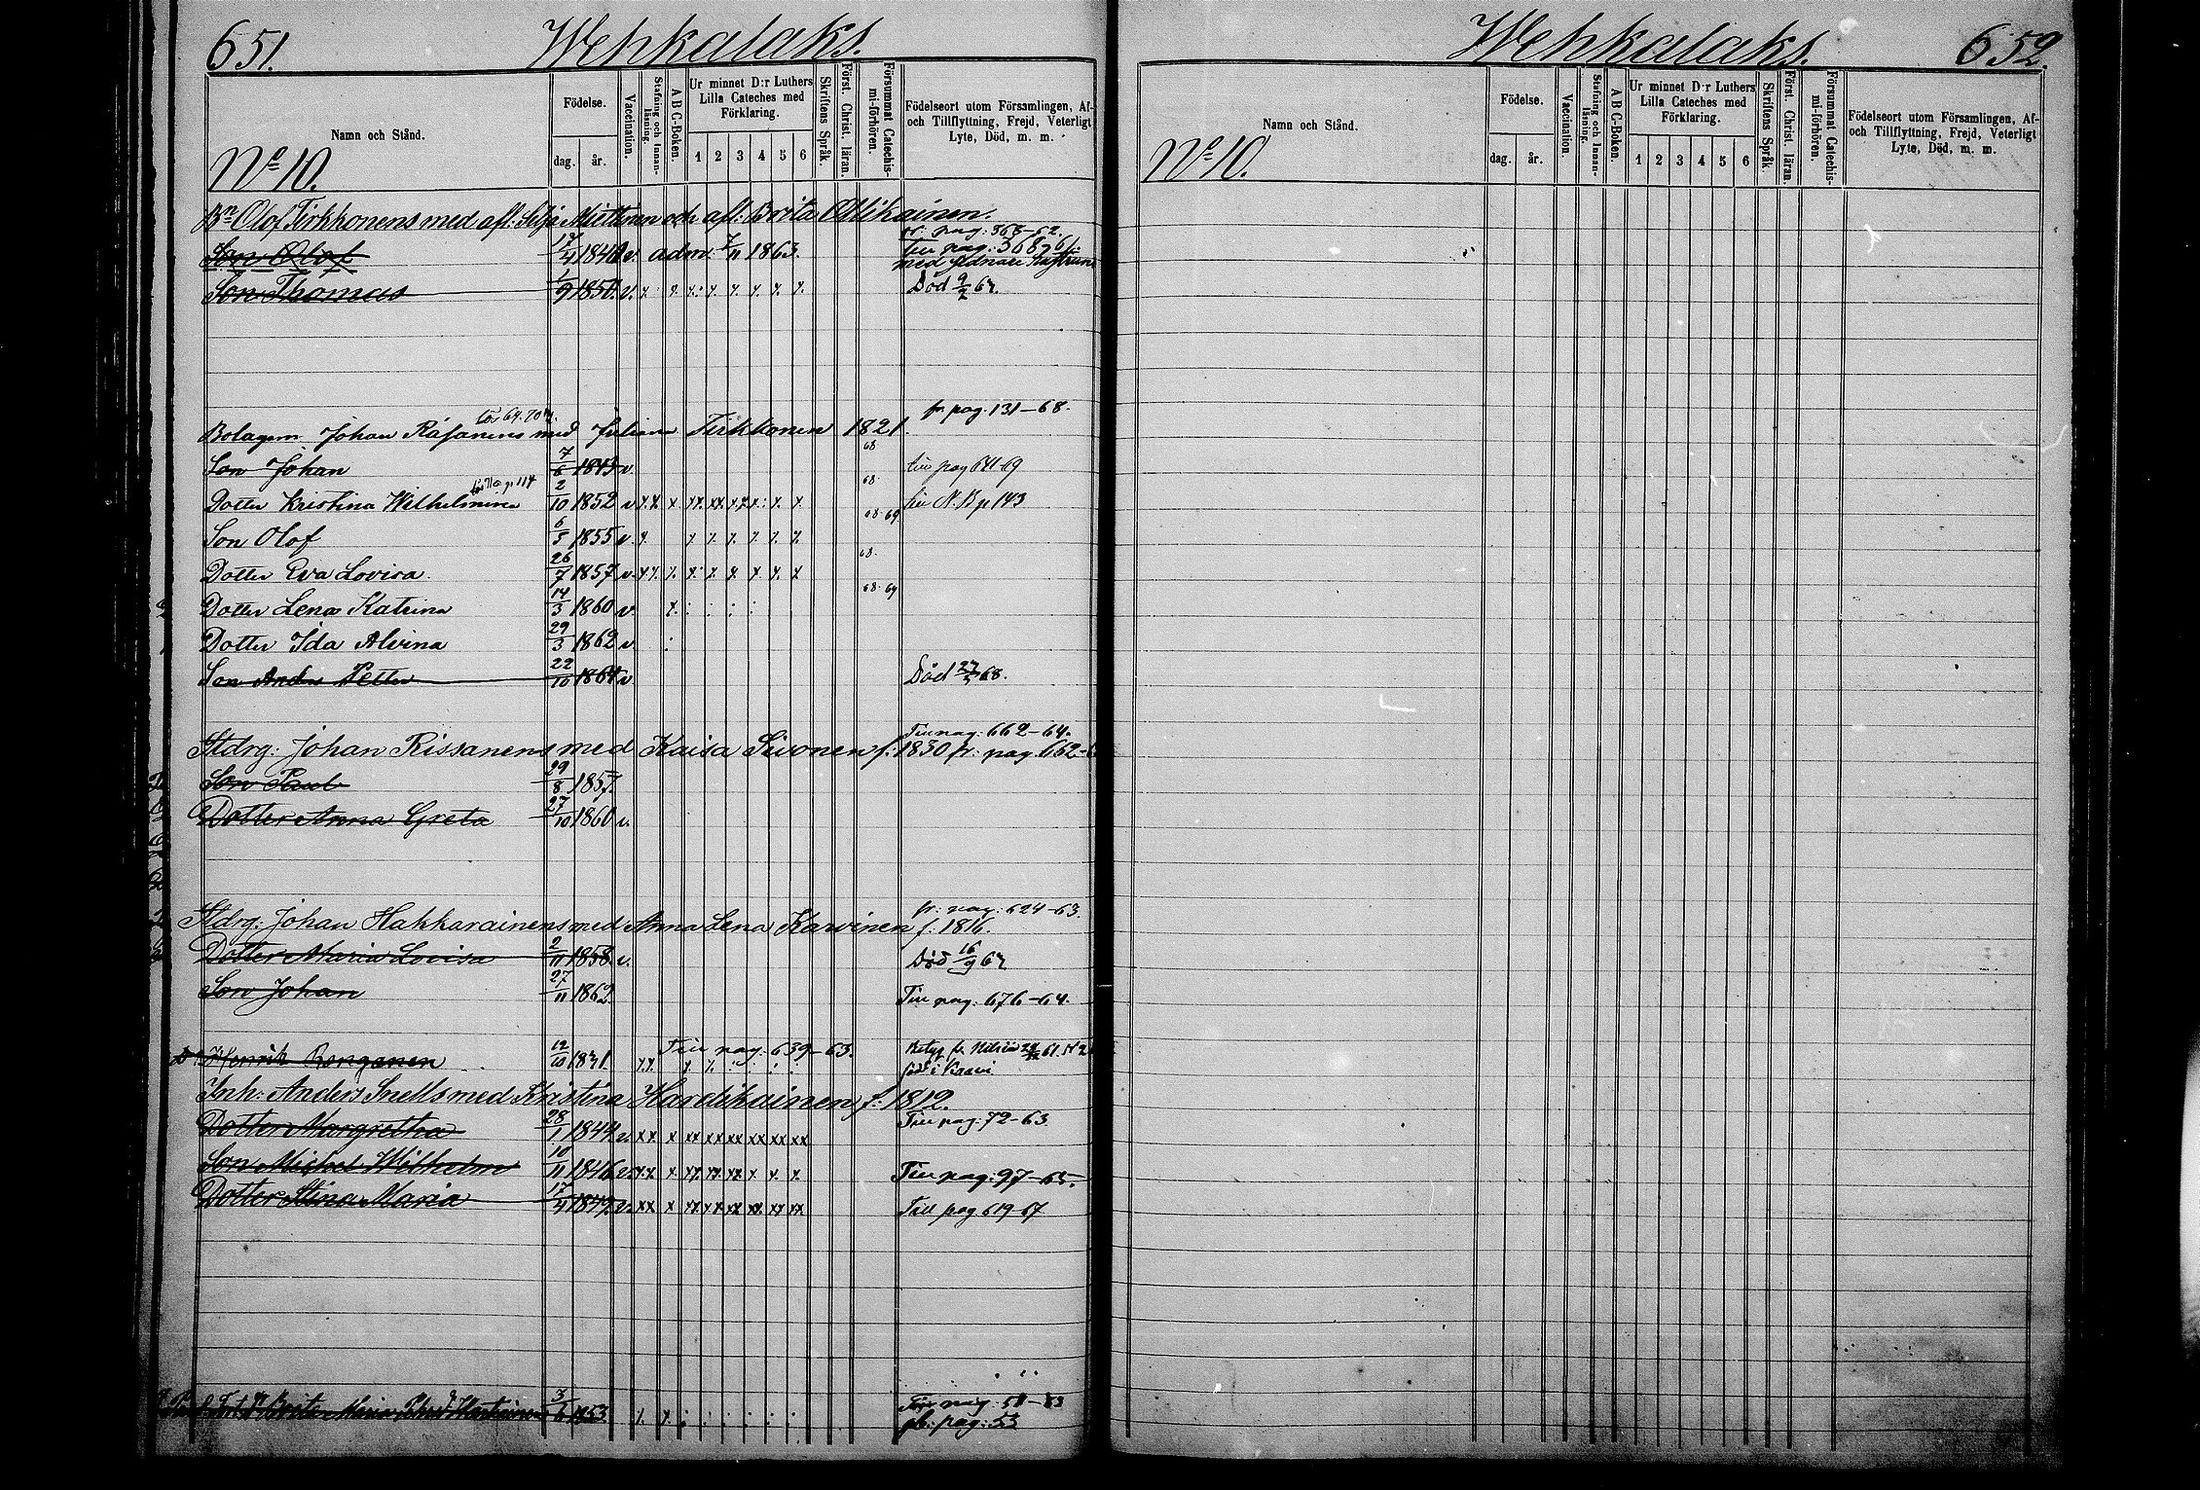 651. Wehkalaks.
Namn och Stånd.
Födelse.
dag. år.
Vaccination.
Stafning och Innan-läsning.
A B C-Boken.
Ur minnet D:r Luthers Lilla Cateches med Förklaring.
1 2 3 4 5 6
Skriftens Språk.
Först. Christ. läran.
Försummat Catechis-mi-förhören.
Födelseort utom Församlingen, Af- och Tillflyttning, Frejd, Veterligt Lyte, Död, m. m.
No 10.
Bn Olof Tirkkonens med afl: Miettinen och afl: Brita
fr. pag: 368-62.
Son Olof 17/4 1846 v. adm. 7/11 1863.
Son Thomas 1/9 1850. v. Död 9/2 67.
fr pag. 131-68.
Bolagsm. Johan Räsänens med Juliana Tirkkonen 1821.
68
Son Johan 7/6 1843 v. till pag 641-69
68.
Dotter Kristina Wilhelmina 2/10 1852 v till N. B p 143
68-69
Son Olof 6/5 1855 v.
68.
Dotter Eva Lovisa. 26/7 1857 v.
68-69
Dotter Lena Katrina 14/3 1860 v.
Dotter Ida Alvina 29/3 1862 v.
Son Anders Petter 22/10 1864 v. Död 27/5 68.
Till pag: 662-64.
Stdrg: Johan Rissanens med Kaisa Sivonen f. 1830 fr: pag. 662-
Son Paul 29/8 1857.
Dotter Anna Greta 27/10 1860 v.
fr: pag: 624-63.
Stdrg: Johan Hakkarainens med Anna Lena Karvinen f. 1816.
Dotter Maria Lovisa 2/11 1858. v. Död 16/9 67
Son Johan 27/11 1862 Till pag: 676-64.
Henrik 12/10 1831. Till pag: 639-63.
Inh: Anders Snells med Kristina f: 1812.
Dotter Margretha 28/1 1844. v. Till pag: 72-63
Son Michel Wilhelm 10/11 1846 v. Till pag: 97-65.
Dotter Stina Maria 17/4 1849. v. Till pag 619-67
Brita Maria 3/6 1853.
pag: 53
Wehkalaks. 652.
Namn och Stånd.
Födelse.
dag. år.
Vaccination.
Stafning och Innan-läsning.
A B C-Boken.
Ur minnet D:r Luthers Lilla Cateches med Förklaring.
1 2 3 4 5 6
Skriftens Språk.
Först. Christ. läran.
Försummat Catechis-mi-förhören.
Födelseort utom Församlingen, Af- och Tillflyttning, Frejd, Veterligt Lyte, Död, m. m.
No 10.